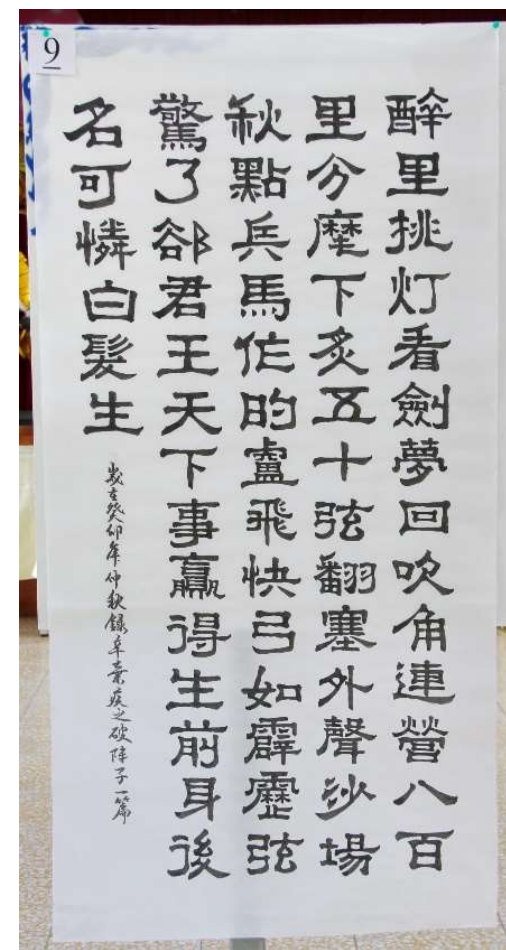 9
醉里挑灯看劍夢回吹角連營八百
里分麾下炙五十弦翻塞外聲沙場
秋點兵馬作的盧飛快弓如霹靂弦
驚了卻君王天下事贏得生前身後
名可憐白髮生
歲在癸卯年仲秋錄辛棄疾之破陣子一篇